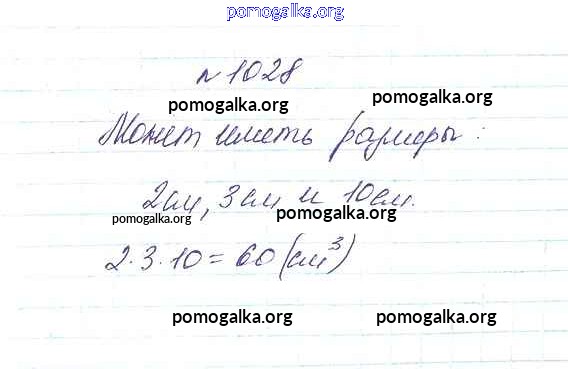 pomogalka.org
№ 1028
pomogalka.org pomogalka.org
Может иметь размеры:
2 см, 3 см и 10 см.
pomogalka.org pomogalka.org
2·3·10 = 60 (см³)
pomogalka.org pomogalka.org